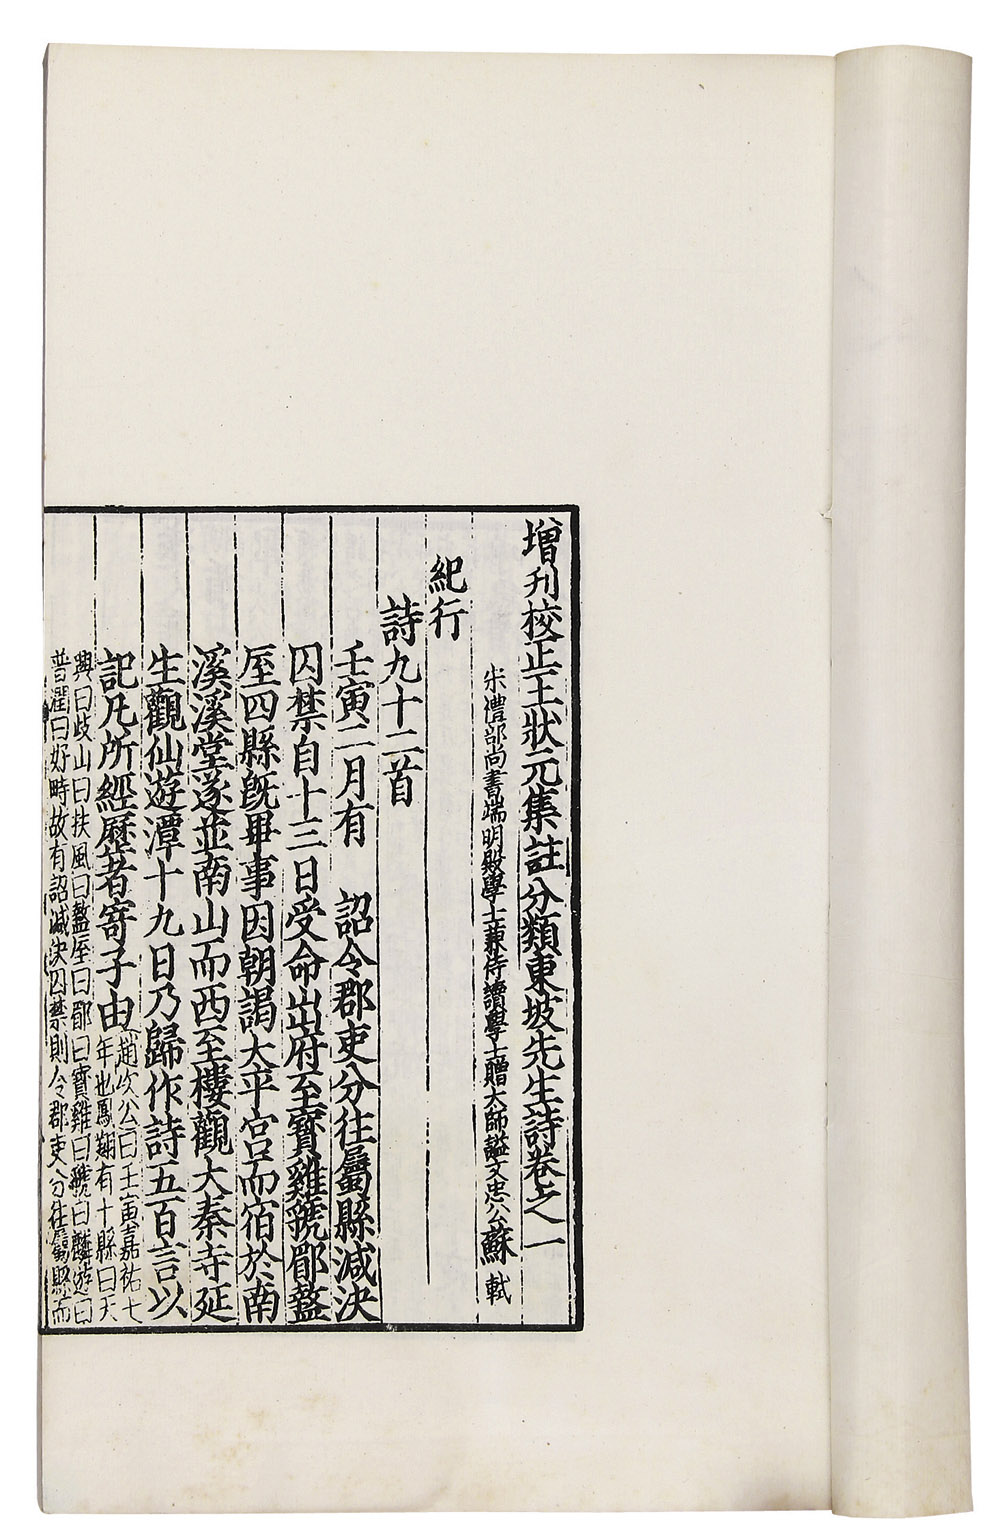 增刊校正王狀元集註分類東坡先生詩卷之一
宋禮部尚書端明殿學士兼侍讀學士贈太師謚文忠公蘇軾
紀行
詩九十二首
壬寅二月有 詔令郡吏分往屬縣減決
囚禁自十三日受命出府至寳雞虢郿盩
厔四縣旣畢事因朝謁太平宮而宿於南
溪溪堂遂並南山而西至樓觀大秦寺延
生觀仙遊潭十九日乃歸作詩五百言以
記凡所經歷者寄子由
趙次公曰壬寅嘉祐七
年也鳳翔有十縣曰天
興曰岐山曰扶風曰盩厔曰郿曰寳雞曰虢曰麟遊曰
普潤曰好畤故有詔減決囚禁則令郡吏分往屬縣而